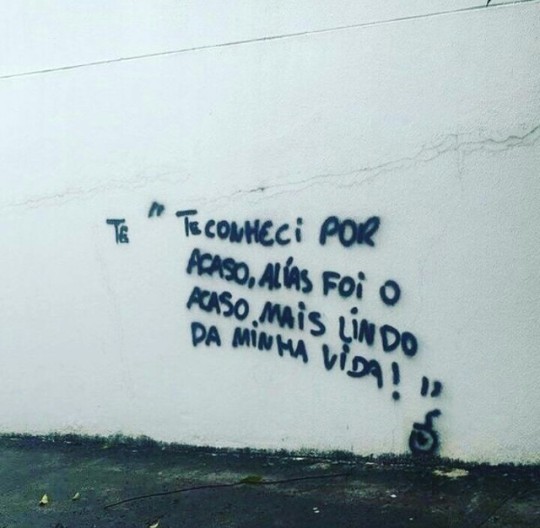 Te " Te CONHECi POR
ACASO, ALiÁS FOi O
ACASO MAiS LiNDO
DA MiNHA ViDA! "